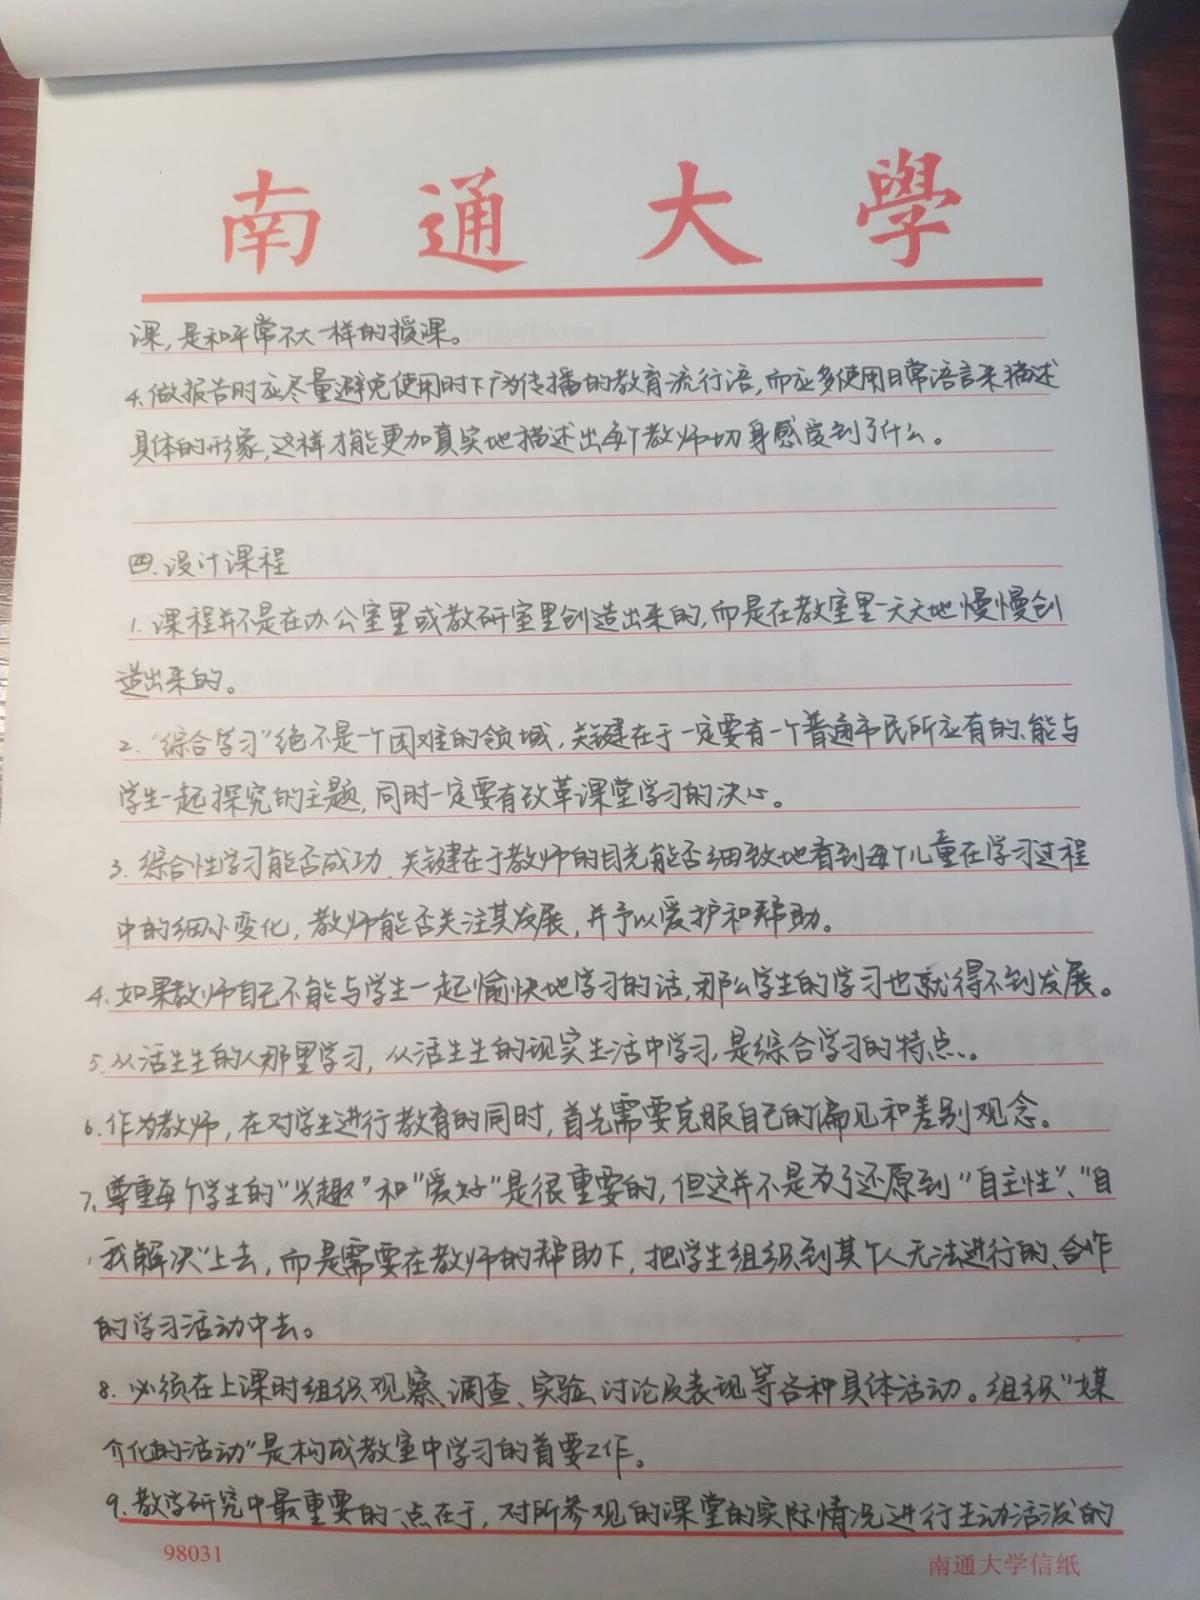 南通大學
课,是和平常不大一样的授课。
4.做报告时应尽量避免使用时下广为传播的教育流行语,而应多使用日常语言来描述
具体的形象,这样才能更加真实地描述出每个教师切身感受到了什么。
四.设计课程
1.课程并不是在办公室里或教研室里创造出来的,而是在教室里一天天地慢慢创
造出来的。
2.“综合学习”绝不是一个困难的领域,关键在于一定要有一个普通市民所应有的、能与
学生一起探究的主题,同时一定要有改革课堂学习的决心。
3.综合性学习能否成功,关键在于教师的目光能否细致地看到每个儿童在学习过程
中的细小变化,教师能否关注其发展,并予以爱护和帮助。
4.如果教师自己不能与学生一起愉快地学习的话,那么学生的学习也就得不到发展。
5.从活生生的人那里学习,从活生生的现实生活中学习,是综合学习的特点。
6.作为教师,在对学生进行教育的同时,首先需要克服自己的偏见和差别观念。
7.尊重每个学生的“兴趣”和“爱好”是很重要的,但这并不是为了还原到“自主性”、“自
我解决”上去,而是需要在教师的帮助下,把学生组织到其个人无法进行的、合作
的学习活动中去。
8.必须在上课时组织观察、调查、实验、讨论及表现等各种具体活动。组织“媒
介化的活动”是构成教室中学习的首要工作。
9.教学研究中最重要的一点在于,对所参观的课堂的实际情况进行生动活泼的
98031
南通大学信纸